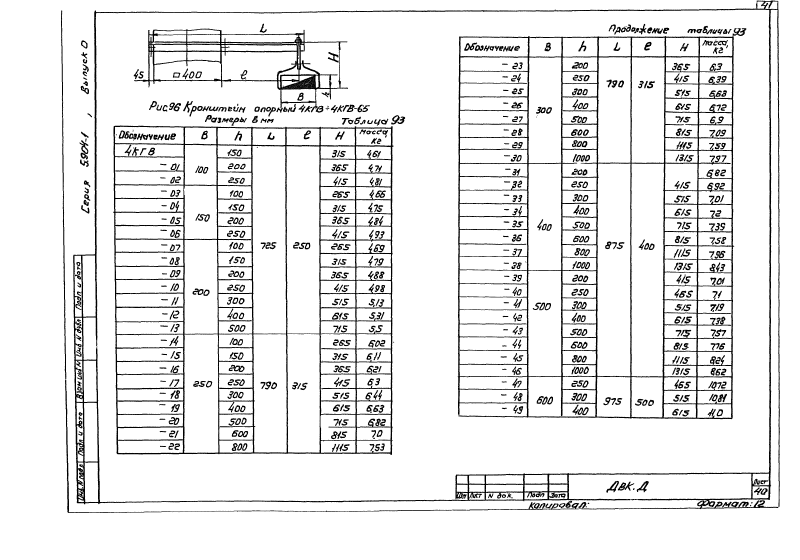 41
Серия 5.904-1, Выпуск 0
L
H
h
45
□400
ℓ
В
Рис96 Кронштейн опорный 4КГВ÷4КГВ-65
Размеры в мм Таблица 93
Обозначение В h L ℓ H Масса, кг
4КГВ 100 150 725 250 315 4,61
-01 200 365 4,71
-02 250 415 4,81
-03 150 100 265 4,66
-04 150 315 4,75
-05 200 365 4,84
-06 250 415 4,93
-07 200 100 265 4,69
-08 150 315 4,79
-09 200 365 4,88
-10 250 415 4,98
-11 300 515 5,13
-12 400 615 5,31
-13 500 715 5,5
-14 250 100 790 315 265 6,02
-15 150 315 6,11
-16 200 365 6,21
-17 250 415 6,3
-18 300 515 6,44
-19 400 615 6,63
-20 500 715 6,82
-21 600 815 7,0
-22 800 1115 7,53
Продолжение таблицы 93
Обозначение В h L ℓ H Масса, кг
-23 300 200 790 315 365 6,3
-24 250 415 6,39
-25 300 515 6,63
-26 400 615 6,72
-27 500 715 6,9
-28 600 815 7,09
-29 800 1115 7,59
-30 1000 1315 7,97
-31 400 200 875 400 6,82
-32 250 415 6,92
-33 300 515 7,01
-34 400 615 7,2
-35 500 715 7,39
-36 600 815 7,58
-37 800 1115 7,96
-38 1000 1315 8,43
-39 500 200 415 7,01
-40 250 465 7,1
-41 300 515 7,19
-42 400 615 7,38
-43 500 715 7,57
-44 600 815 7,76
-45 800 1115 8,24
-46 1000 1315 8,62
-47 600 250 975 500 465 10,72
-48 300 515 10,81
-49 400 615 11,0
Инв. N подл. Подп. и дата Взам. инв. N Инв. N дубл. Подп. и дата
Лист N док. Подп. Дата
ДВК.Д
Лист
40
Копировал: Формат: 12